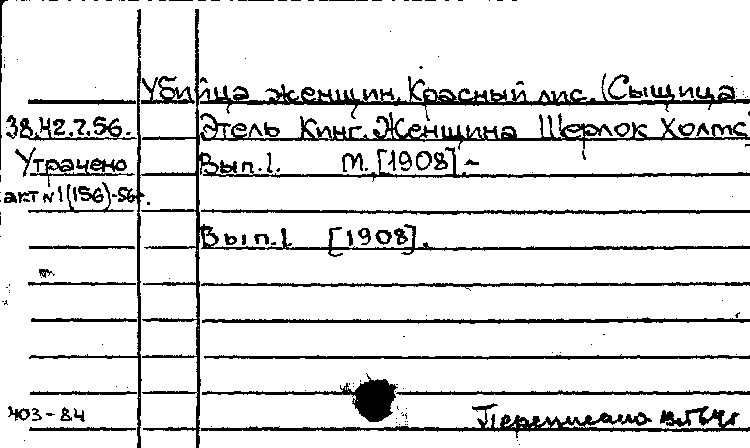 Убийца женщин. Красный лис. (Сыщица
38.42.7.56. Этель Кинг. Женщина Шерлок Холмс)
Утрачено Вып.1. М. [1908].-
акт №1(156)-56г.
Вып.1 [1908].
403-84
Переписано